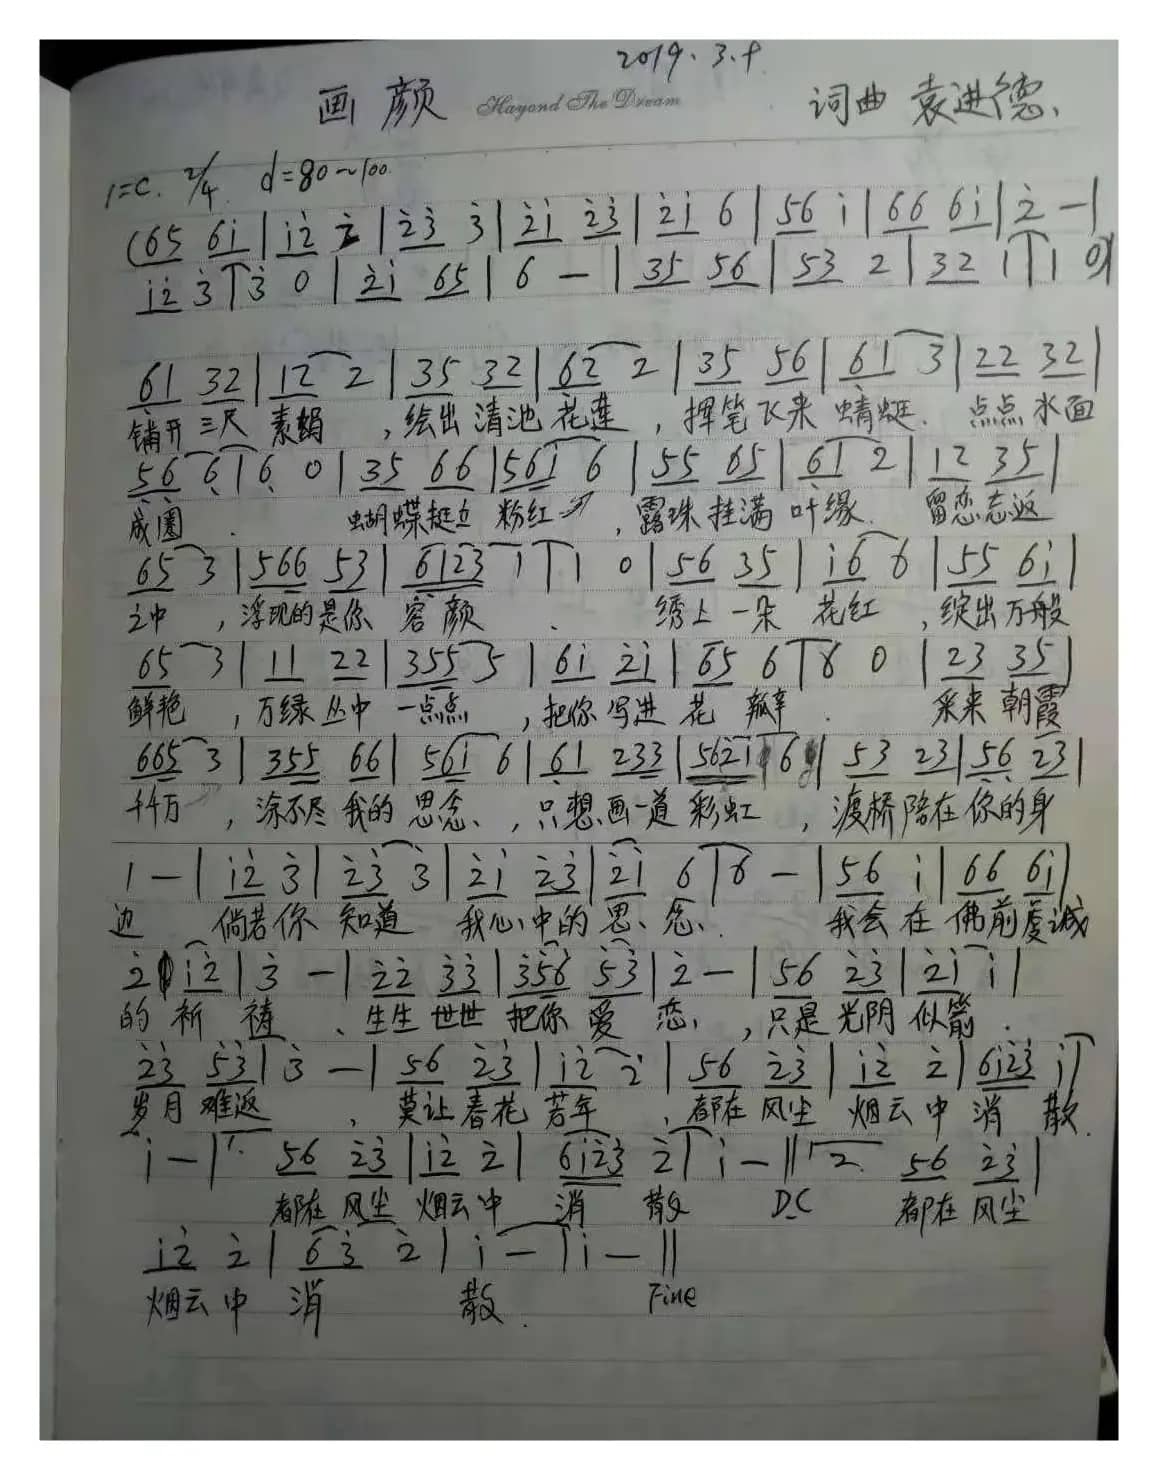 2019.3.9
画颜 Hayond The Dream 词曲 袁进德、
1=C. 2/4 d=80~100.
(65 6i | i2 2 | 23 3 | 2i 23 | 2i 6 | 56 i | 66 6i | 2 — |
i2 3 | 3 0 | 2i 65 | 6 — | 35 56 | 53 2 | 32 1 | 1 0)
61 32 | 12 2 | 35 32 | 62 2 | 35 56 | 61 3 | 22 32 |
铺开三尺 素绢 ,绘出清池 花莲 ,挥笔飞来 蜻蜓. 点点水面
56 6 | 6 0 | 35 66 | 56i 6 | 55 65 | 61 2 | 12 35 |
成圈. 蝴蝶挺立 粉红 ,露珠挂满 叶缘. 留恋忘返
65 3 | 566 53 | 6123 1 | 1 0 | 56 35 | i6 6 | 55 6i |
之中 ,浮现的是你 容颜. 绣上一朵 花红 ,绽出万般
65 3 | 11 22 | 355 5 | 6i 2i | 65 6 | 6 0 | 23 35 |
鲜艳 ,万绿丛中 一点点 ,把你写进 花 瓣. 采来朝霞
665 3 | 355 66 | 56i 6 | 61 233 | 5621 6 | 53 23 | 56 23 |
千千万 ,涂不尽我的 思念、,只想画一道 彩虹 ,渡桥陪在你的身
1 — | i2 3 | 23 3 | 2i 23 | 2i 6 | 6 — | 56 i | 66 6i |
边 倘若你 知道 我心中的 思、念、 我会在 佛前虔诚
2 i2 | 3 — | 22 33 | 356 53 | 2 — | 56 23 | 2i i |
的祈祷 、生生世世 把你爱恋、,只是光阴 似箭.
23 53 | 3 — | 56 23 | i2 2 | 56 23 | i2 2 | 6i23 i |
岁月难返 ,莫让春花 若年 ,都在风尘 烟云中 消散.
i — | 1. 56 23 | i2 2 | 6i23 2 | i — || 2. 56 23 |
都在风尘 烟云中 消 散 D.C 都在风尘
i2 2 | 63 2 | i — | i — ||
烟云中 消 散. Fine